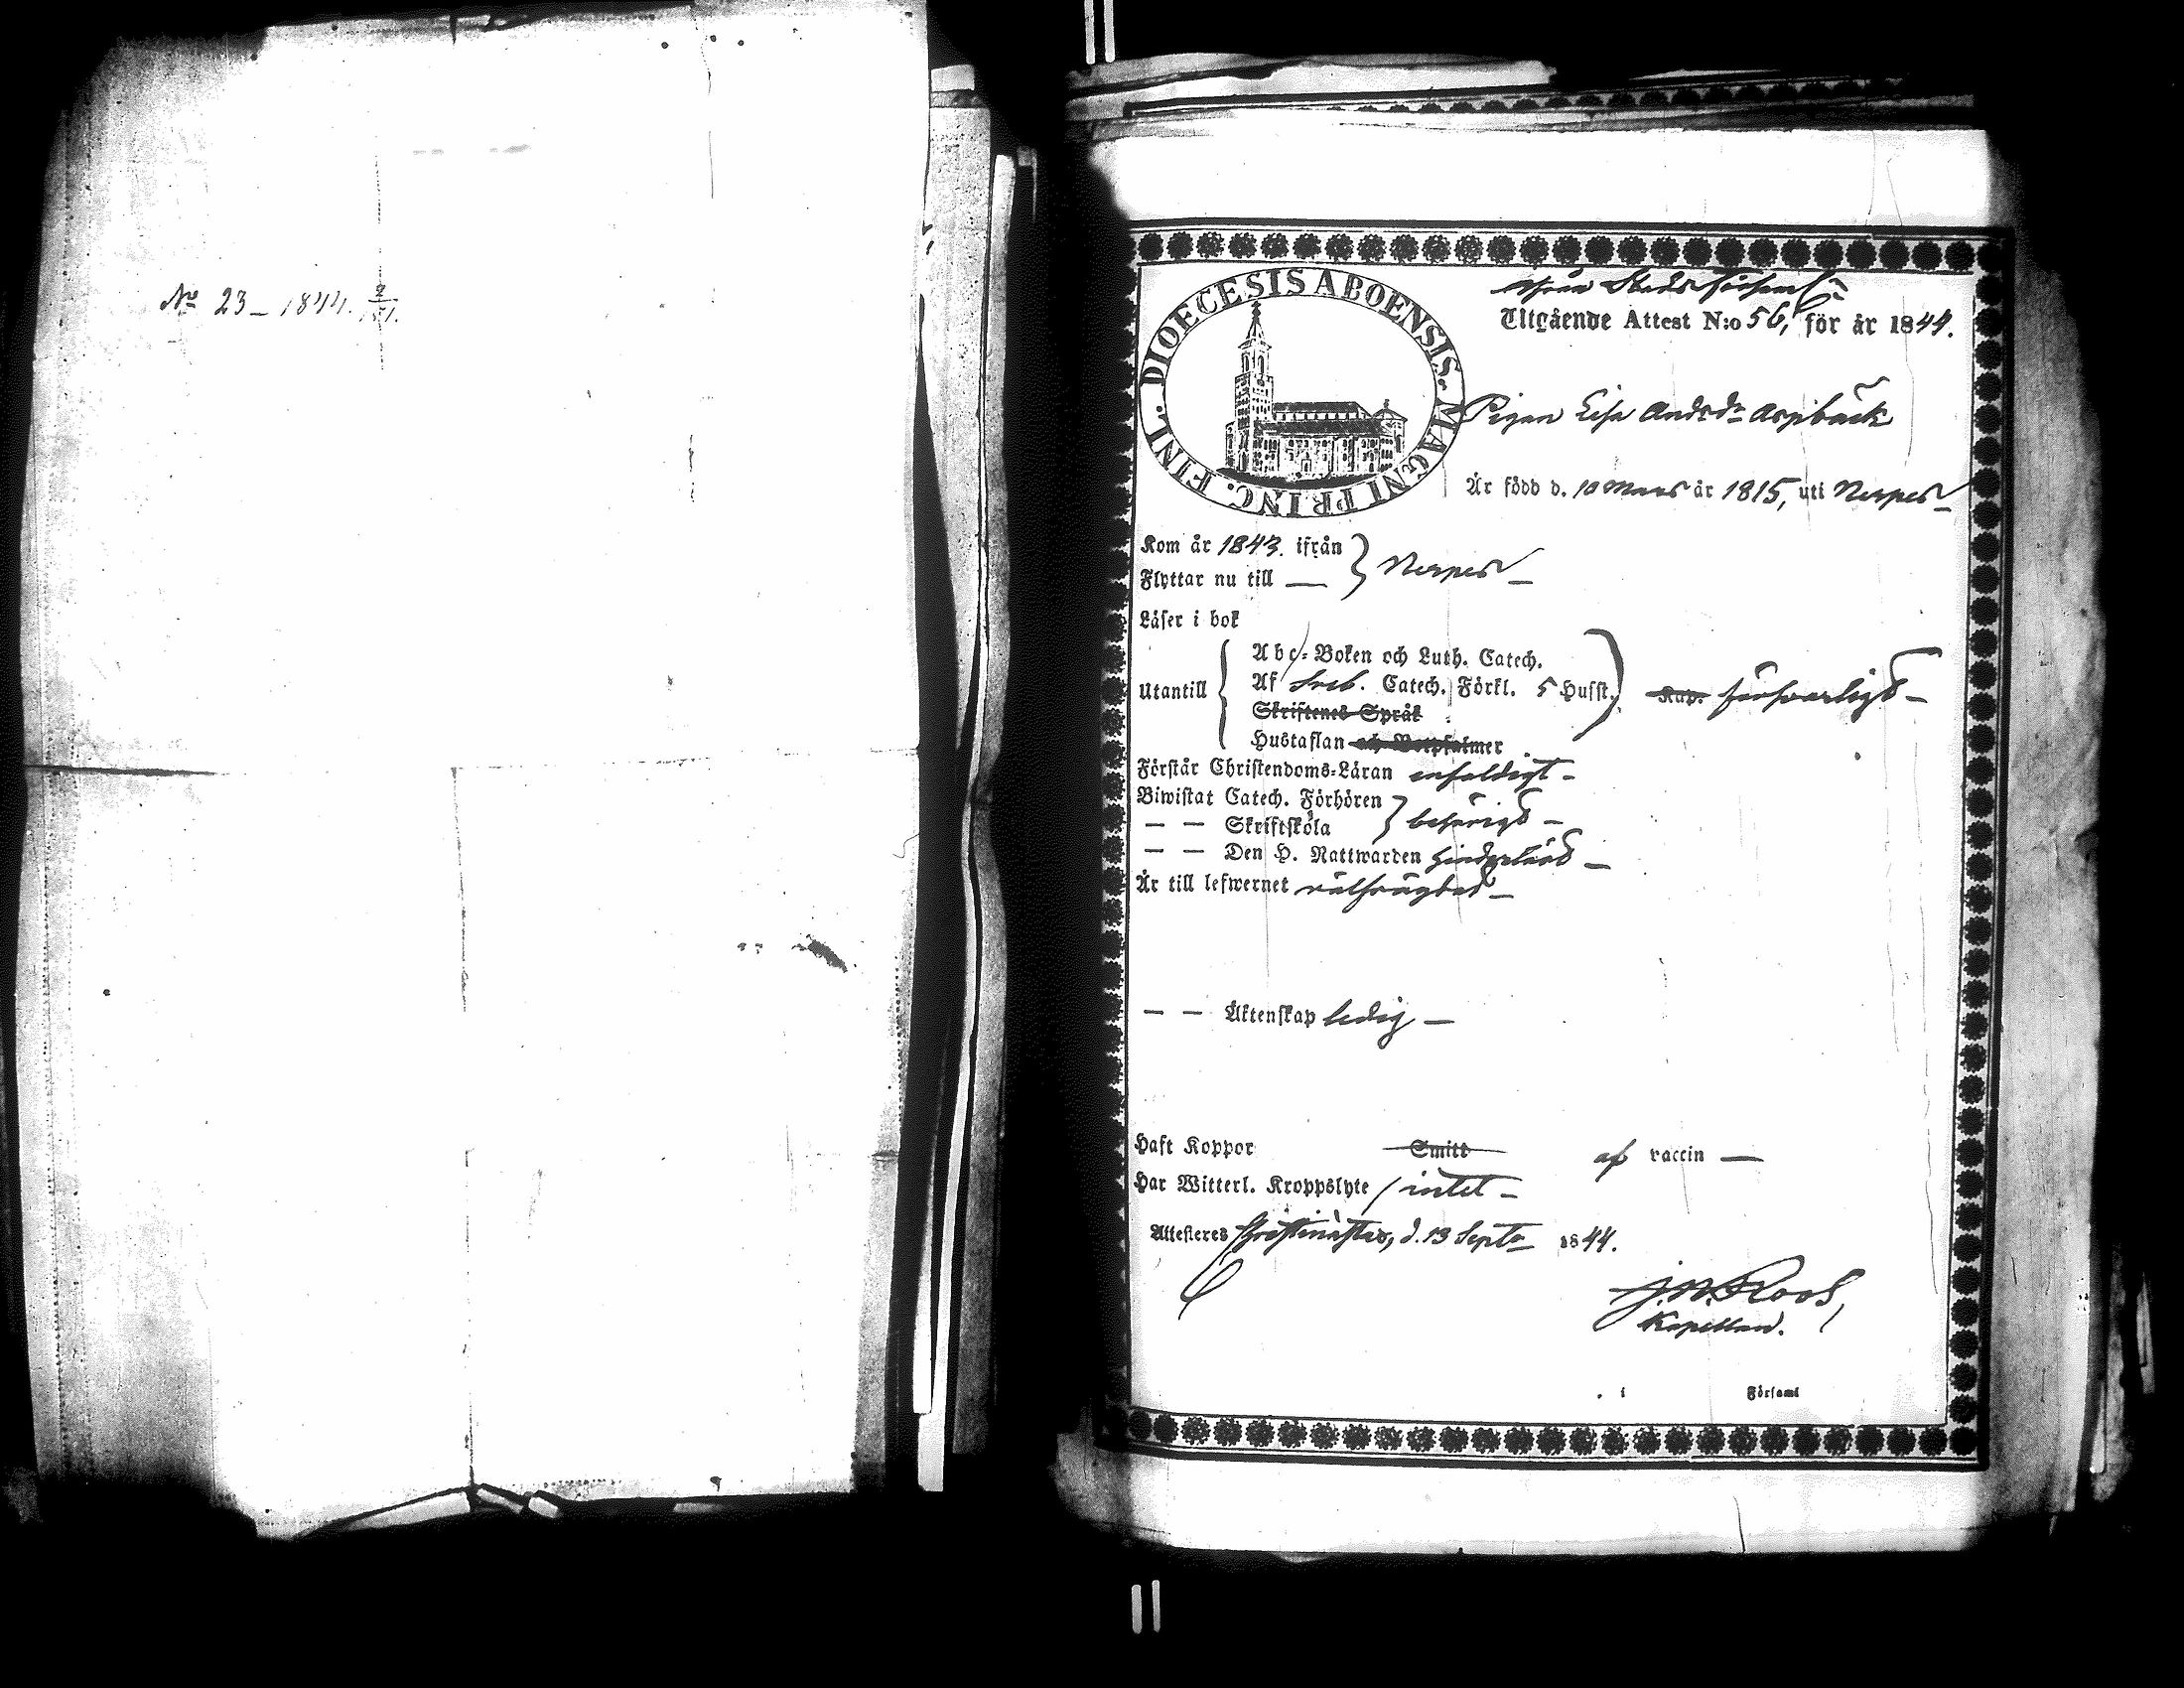 No 23 – 1844.
DIOECESIS ABOENSIS. MAGNI PRINC. FINL.
ifrån Stadsförsaml:
Utgående Attest N:o 56, för år 1844.
Pigan Lisa Andsdr Aspbäck
Är född d. 10 Mars år 1815, uti Nerpes –
Kom år 1843. ifrån
Flyttar nu till — } Nerpes –
Läser i bok
Abc-Boken och Luth. Catech.
Utantill { Af Sveb. Catech. Förkl. 5 Hufst. Kap. försvarligt –
Skriftenes Språk
Hustaflan och Botpsalmer
Förstår Christendoms-Läran enfaldigt –
Biwistat Catech. Förhören
— — Skriftskola } behörigt –
— — Den H. Nattwarden
Är till lefwernet välfrägdad –
— — Äktenskap ledig –
Haft Koppor Smitt af vaccin —
Har Witterl. Kroppslyte / intet –
Attesteres Christinæstad, d. 13 Septr 1844.
J. W. Roos,
Kapellan.
i Församl